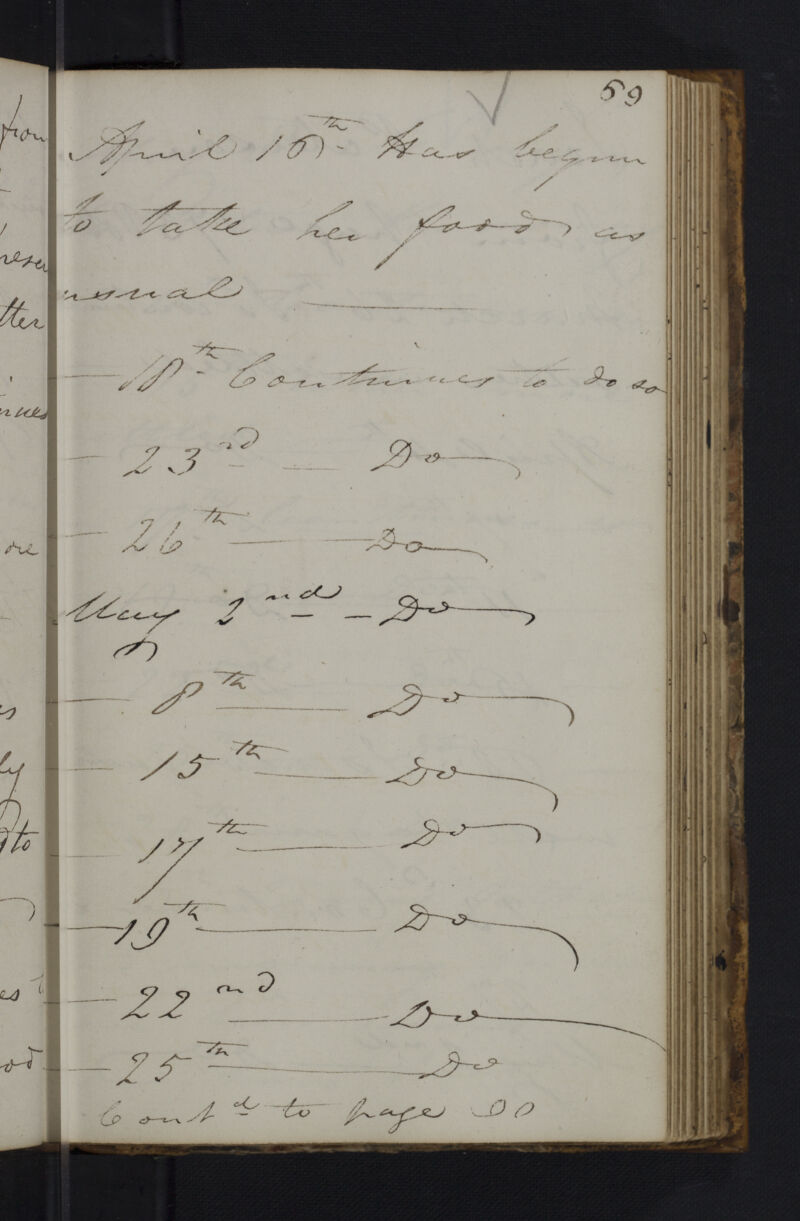 59
April 16th Has begun
to take her food as
usual
— 18th Continues to do so
— 23rd — Do
— 26th — Do
May 2nd — Do
— 8th — Do
— 15th — Do
— 17th — Do
— 19th — Do
— 22nd — Do
— 25th — Do
Contd to page